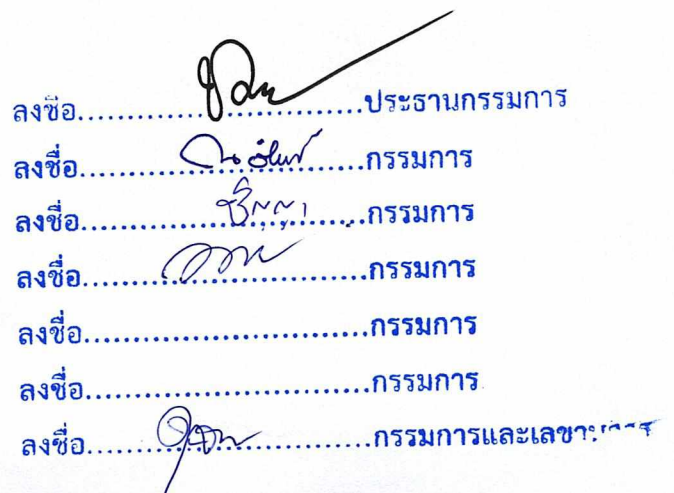 ลงชื่อ....................................ประธานกรรมการ
ลงชื่อ....................................กรรมการ
ลงชื่อ....................................กรรมการ
ลงชื่อ....................................กรรมการ
ลงชื่อ....................................กรรมการ
ลงชื่อ....................................กรรมการ
ลงชื่อ....................................กรรมการและเลขานุการ